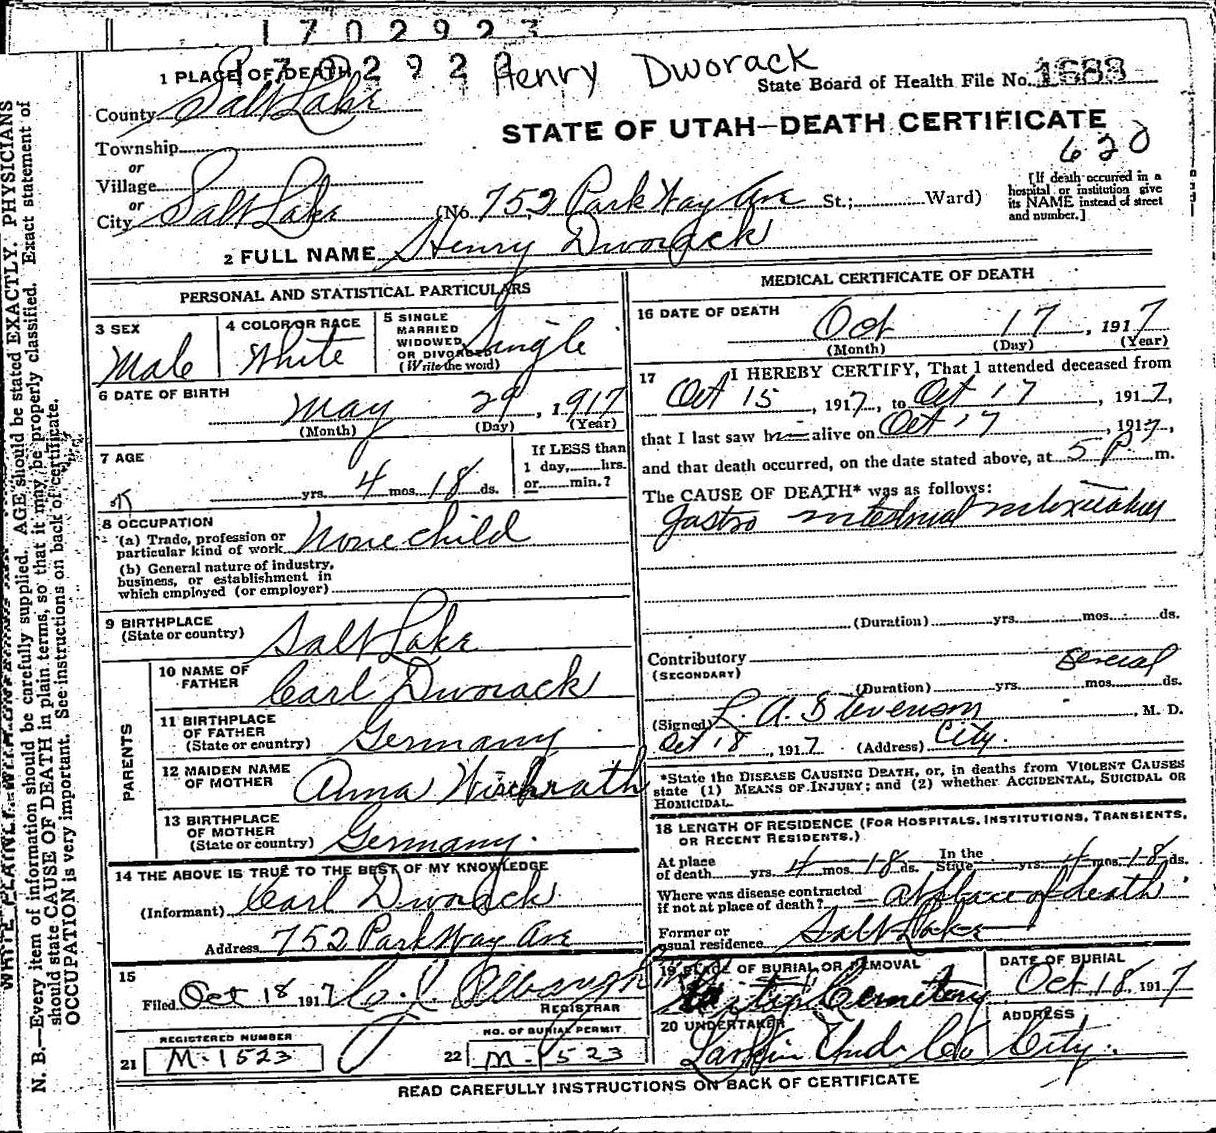 1702923
1702923
Henry Dworack
1 PLACE OF DEATH
State Board of Health File No. 1688
County Salt Lake
STATE OF UTAH—DEATH CERTIFICATE
620
Township
or
Village
or
City Salt Lake (No. 752 Park Way Ave St.; Ward)
[If death occurred in a hospital or institution give its NAME instead of street and number.]
2 FULL NAME Henry Dworack
PERSONAL AND STATISTICAL PARTICULARS
3 SEX
Male
4 COLOR OR RACE
White
5 SINGLE MARRIED WIDOWED OR DIVORCED (Write the word)
Single
6 DATE OF BIRTH
May 29, 1917
(Month) (Day) (Year)
7 AGE
yrs. 4 mos. 18 ds.
If LESS than
1 day, hrs.
or min.?
8 OCCUPATION
(a) Trade, profession or
particular kind of work None child
(b) General nature of industry,
business, or establishment in
which employed (or employer)
9 BIRTHPLACE
(State or country) Salt Lake
PARENTS
10 NAME OF
FATHER Carl Dworack
11 BIRTHPLACE
OF FATHER
(State or country) Germany
12 MAIDEN NAME
OF MOTHER Anna
13 BIRTHPLACE
OF MOTHER
(State or country) Germany.
14 THE ABOVE IS TRUE TO THE BEST OF MY KNOWLEDGE
(Informant) Carl Dworack
Address 752 Park Way Ave
15
Filed Oct 18 1917
REGISTRAR
REGISTERED NUMBER
21 M-1523
NO. OF BURIAL PERMIT
22 M-1523
MEDICAL CERTIFICATE OF DEATH
16 DATE OF DEATH
Oct 17, 1917
(Month) (Day) (Year)
17 I HEREBY CERTIFY, That I attended deceased from
Oct 15, 1917, to Oct 17, 1917,
that I last saw h alive on Oct 17, 1917,
and that death occurred, on the date stated above, at 5 P m.
The CAUSE OF DEATH* was as follows:
Gastro intestinal intoxication
(Duration) yrs. mos. ds.
Contributory
(SECONDARY)
several
(Duration) yrs. mos. ds.
(Signed) L. A. Stevenson, M. D.
Oct 18, 1917 (Address) City.
*State the DISEASE CAUSING DEATH, or, in deaths from VIOLENT CAUSES
state (1) MEANS OF INJURY; and (2) whether ACCIDENTAL, SUICIDAL OR
HOMICIDAL.
18 LENGTH OF RESIDENCE (FOR HOSPITALS, INSTITUTIONS, TRANSIENTS,
OR RECENT RESIDENTS.)
At place of death yrs. 4 mos. 18 ds. In the State yrs. 4 mos. 18 ds.
Where was disease contracted
if not at place of death? at place of death
Former or
usual residence Salt Lake
19 PLACE OF BURIAL OR REMOVAL
Cemetery
DATE OF BURIAL
Oct 18, 1917
20 UNDERTAKER
Larkin Und. Co
ADDRESS
City.
READ CAREFULLY INSTRUCTIONS ON BACK OF CERTIFICATE
N. B.—Every item of information should be carefully supplied. AGE should be stated EXACTLY. PHYSICIANS
should state CAUSE OF DEATH in plain terms, so that it may be properly classified. Exact statement of
OCCUPATION is very important. See instructions on back of certificate.